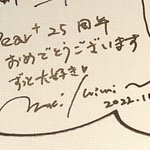 Pear+ 25周年
おめでとうございます
ずっと大好き♡
2022.11